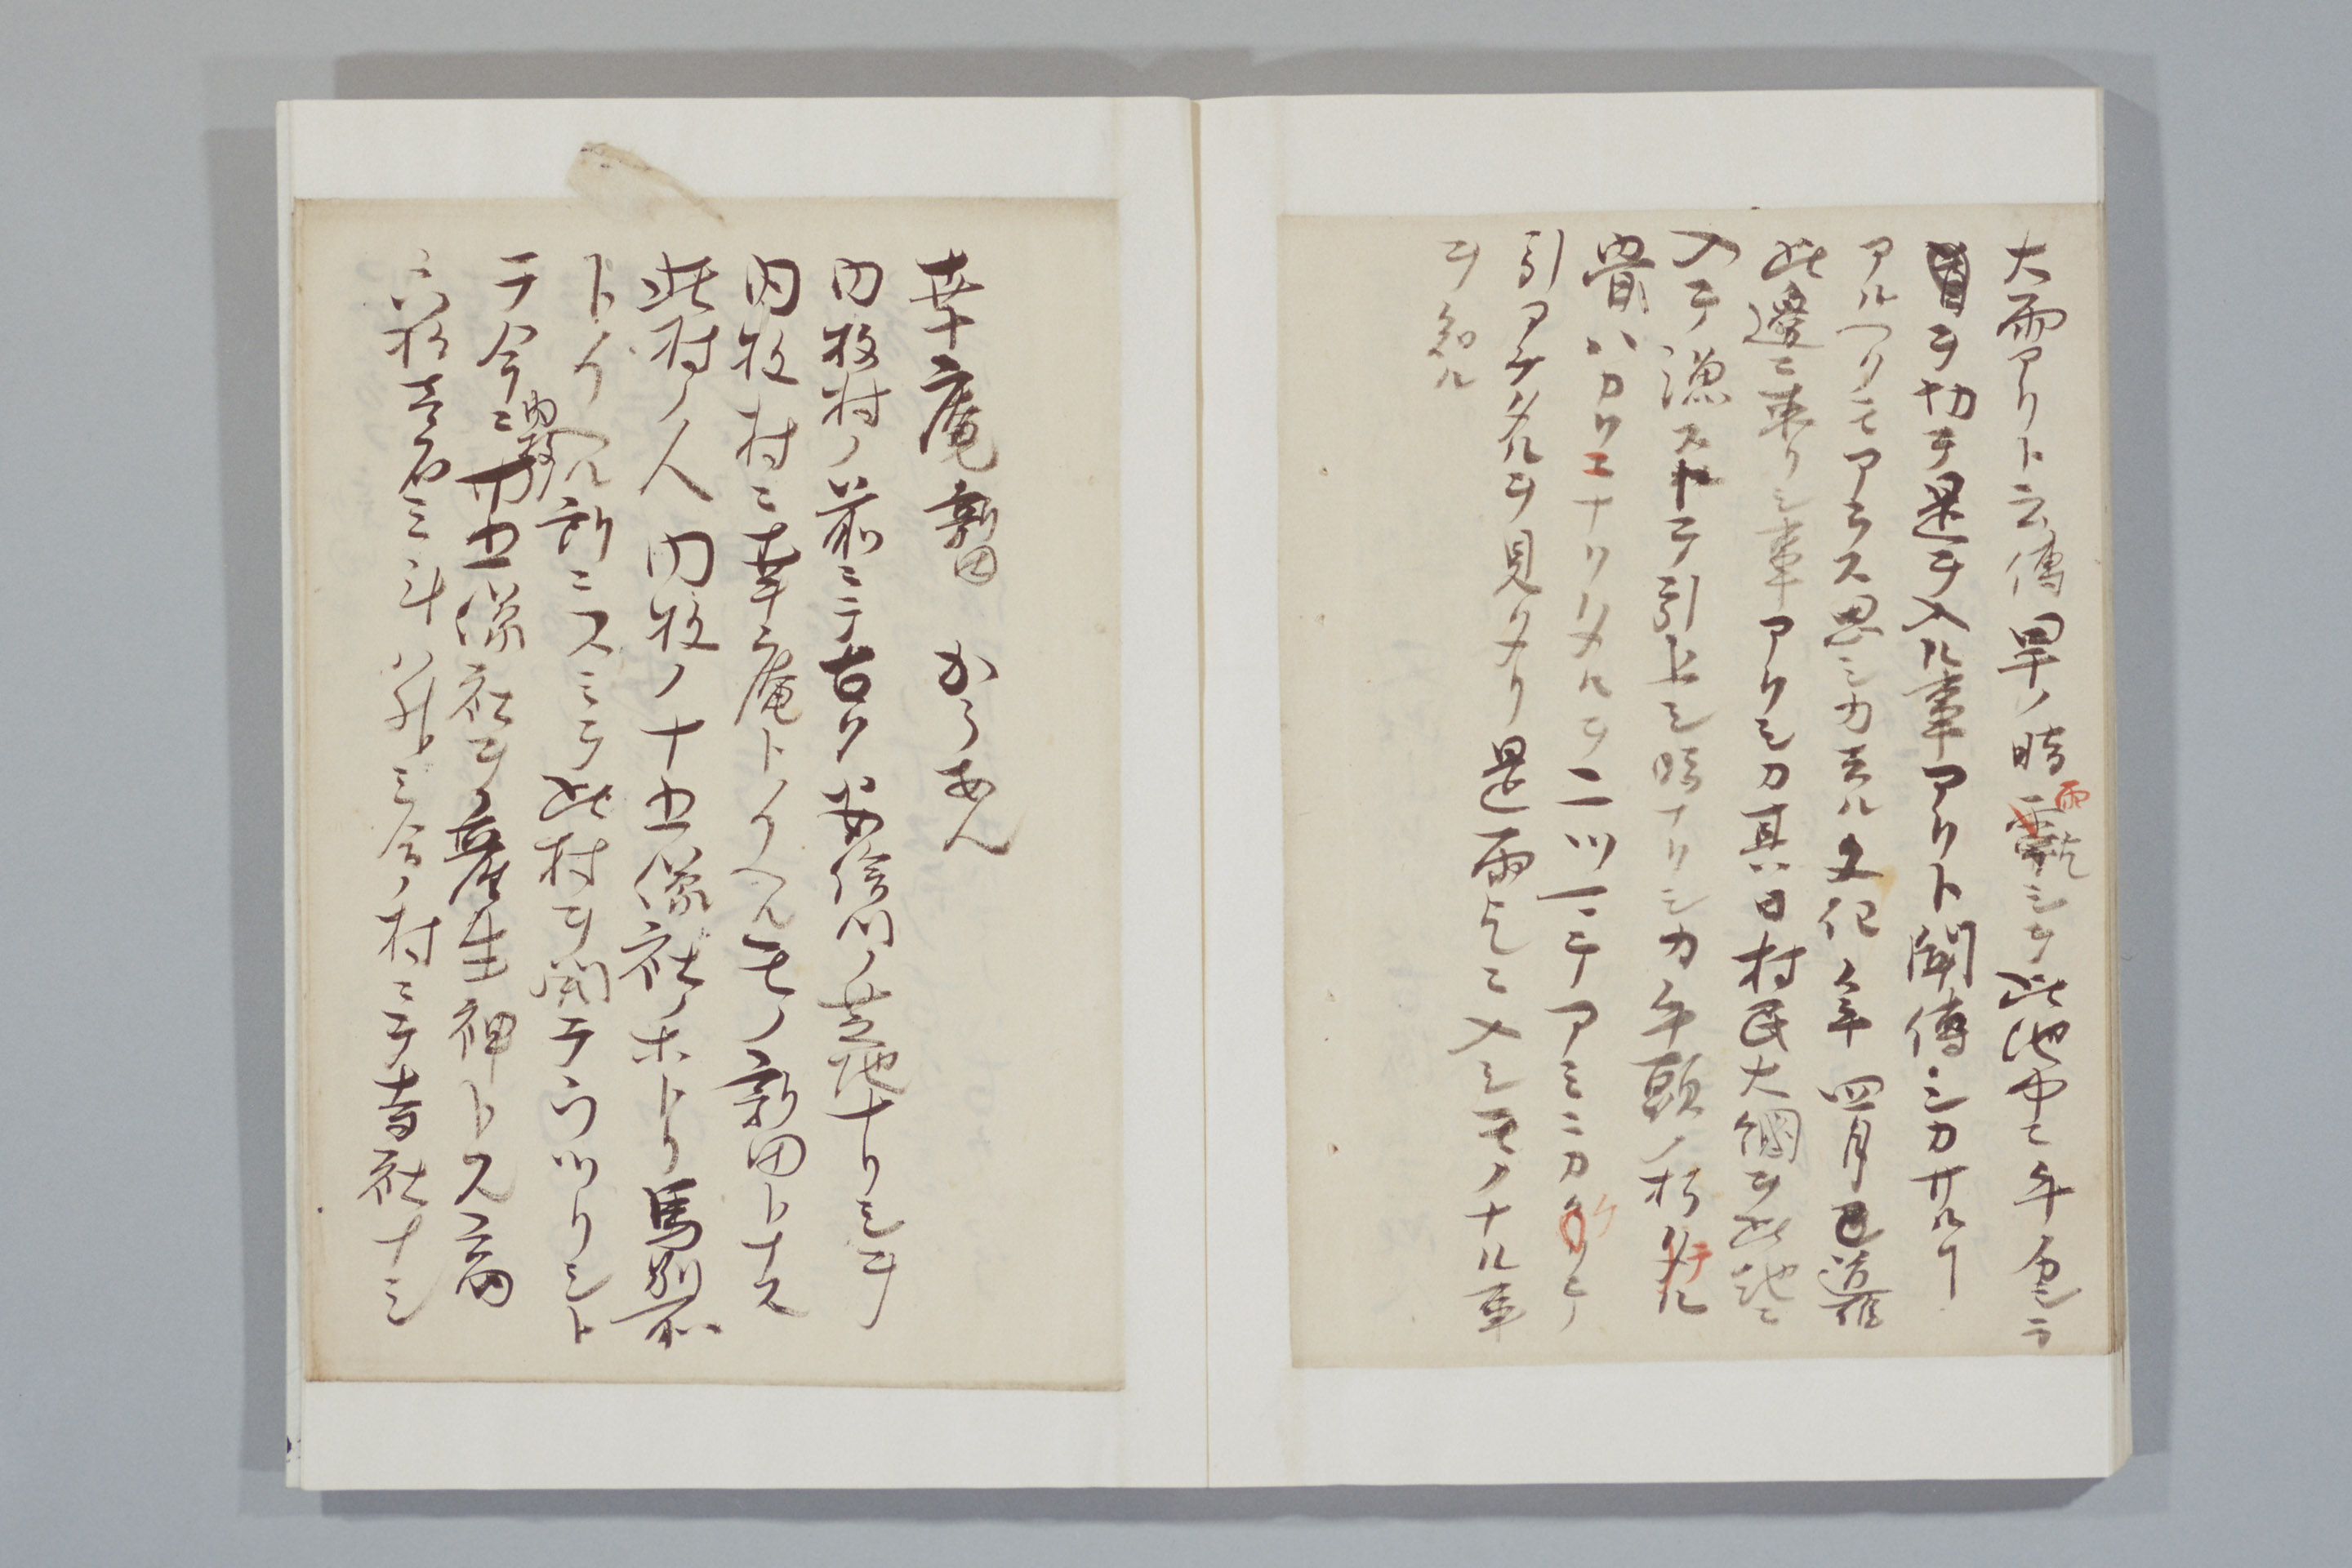 大雨アリト云傳旱ノ時雨乞シテ此池中ニ牛
首ヲ切テ是ヲ入ル事アリト聞傳シカサル事
アルヘクモアラス思シカ去ル文化 年四月
此邊ニ来リシ事アリシカ其日村民大網ヲ此池ニ
入テ漁ス ヲ引上シ時ナリシカ牛頭ノ朽タル
骨ハカリニナリタルヲ二ツ三ツアミニカヽリテ
引アケタルヲ見タリ是雨乞ニ入シモノナル事
ヲ知ル
幸庵新田 かうあん
内牧村ノ前ニテ古ク安倍川ノ荒地ナリシヲ
内牧村ニ幸庵トイヘルモノ新田トナス
此村ノ人内牧ノ十五俵社ノホトリ馬
トイヘル所ニスミテ此村ヲ開テウツリシト
テ今ニ内牧十五俵社ヲ産生神トス高
六拾 石三斗 升ニ今ノ村ニテ寺社ナシ